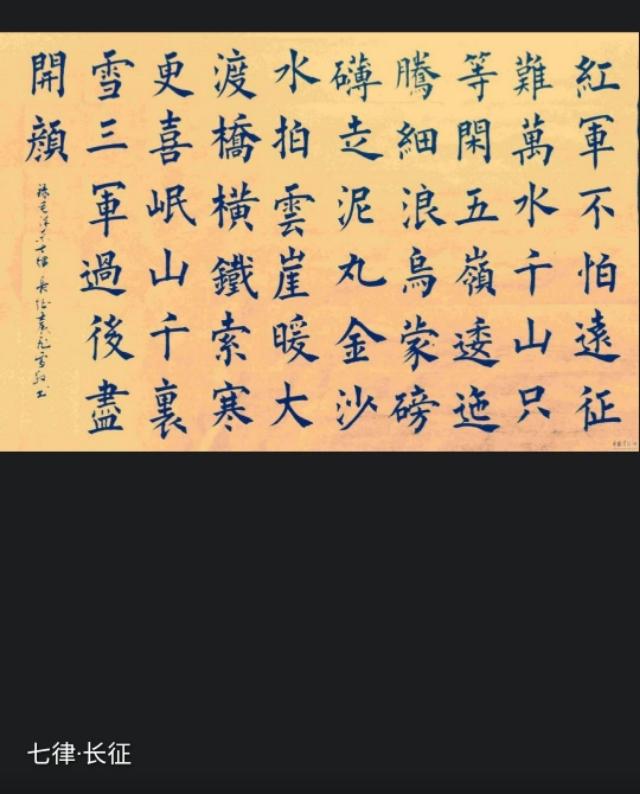 紅軍不怕遠征
難萬水千山只
等閑五嶺逶迤
騰細浪烏蒙磅
礴走泥丸金沙
水拍雲崖暖大
渡橋横鐵索寒
更喜岷山千裏
雪三軍過後盡
開顔
七律
七律·长征